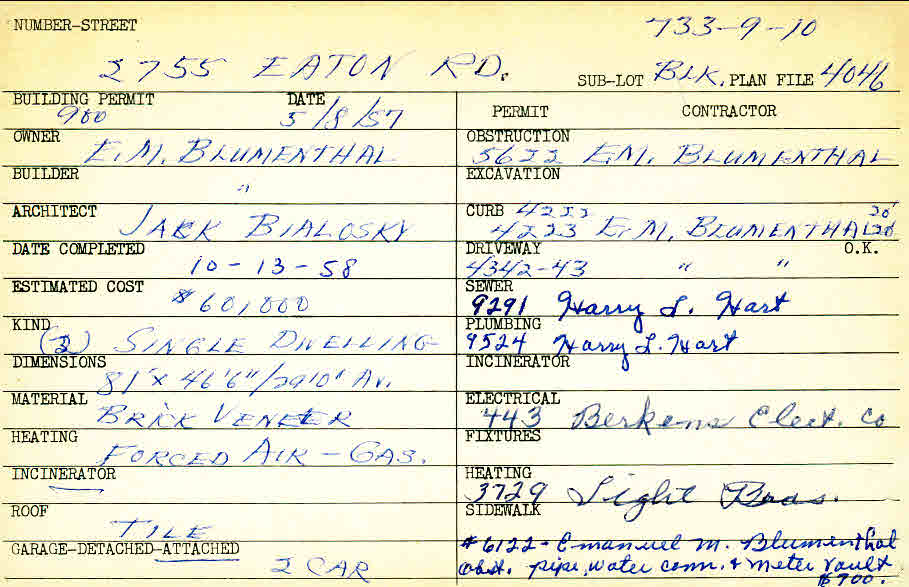 NUMBER-STREET 733-9-10
2755 EATON RD. SUB-LOT BLK. PLAN FILE 4046
BUILDING PERMIT DATE PERMIT CONTRACTOR
900 5/8/57
OWNER E.M. BLUMENTHAL OBSTRUCTION 5622 E.M. BLUMENTHAL
BUILDER " EXCAVATION
ARCHITECT JACK BIALOSKY CURB 4222 20'
4223 E.M. BLUMENTHAL 20'
DATE COMPLETED 10-13-58 DRIVEWAY 4342-43 " " O.K.
ESTIMATED COST $60,000 SEWER 9291 Harry L. Hart
KIND (2) SINGLE DWELLING PLUMBING 9524 Harry L. Hart
DIMENSIONS 81' X 46'6"/29'0" AV. INCINERATOR
MATERIAL BRICK VENEER ELECTRICAL 443 Berkens Elect. Co
HEATING FORCED AIR - GAS. FIXTURES
INCINERATOR — HEATING 3729 Light Bros.
ROOF TILE SIDEWALK
GARAGE-DETACHED-ATTACHED 2 CAR #6122- Emanuel M. Blumenthal
obst. pipe, water conn. & meter vault
$900.